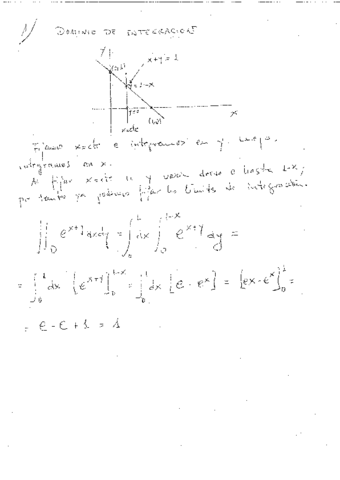 1/ DOMINIO DE INTEGRACION
y
(0,1)
x+y=1
y=1-x
y=0
x
x=cte
(1,0)
Fijamos x=cte e integramos en y. Luego
integramos en x.
Al fijar x=cte y varía desde 0 hasta 1-x;
por tanto ya podemos fijar los límites de integración.
∬_D e^{x+y} dxdy = ∫_0^1 dx ∫_0^{1-x} e^{x+y} dy =
= ∫_0^1 dx [e^{x+y}]_0^{1-x} = ∫_0^1 dx [e - e^x] = [ex - e^x]_0^1 =
= e - e + 1 = 1